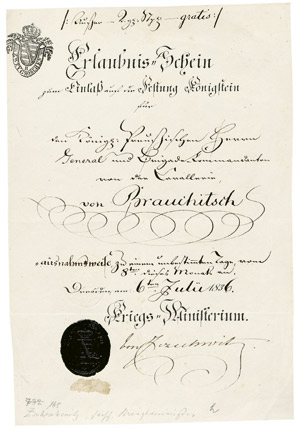 gratis :/
Erlaubnis-Schein
zum Einlaß auf die Festung Königstein
für
den Königl. Preußischen Herrn
General und Brigade Kommandanten
von der Cavallerie
von Brauchitsch
ausnahmsweise zu einem unbestimmten Tage, vom
8ten dieses Monats an.
Dresden, am 6ten Julii 1836.
Kriegs-Ministerium.